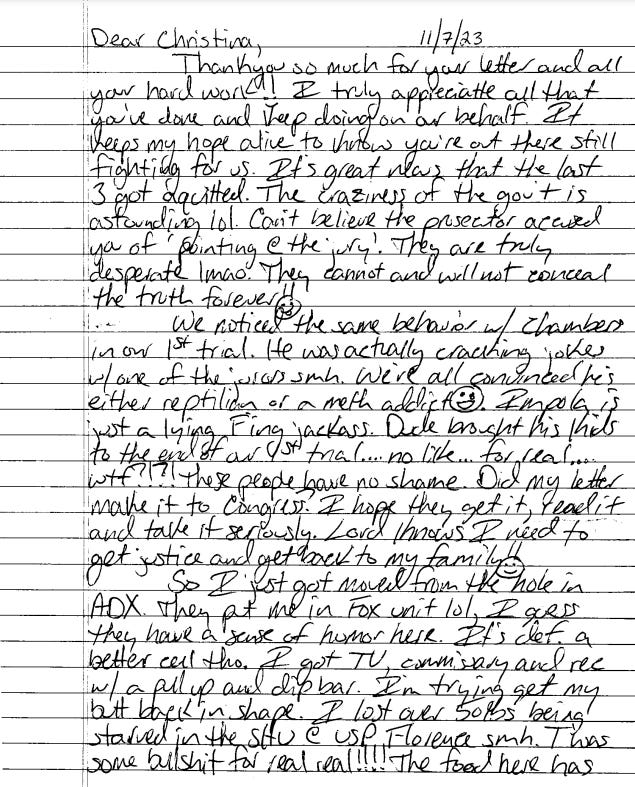 Dear Christina, 11/7/23
Thankyou so much for your letter and all
your hard work!! I truly appreciatte all that
you've done and keep doing on our behalf. It
keeps my hope alive to know you're out there still
fighting for us. It's great news that the last
3 got aquitted. The craziness of the gov't is
astounding lol. Can't believe the prosector accused
you of 'pointing @ the jury'. They are truly
desperate lmao. They cannot and will not conceal
the truth forever!!
We noticed the same behavior w/ Chambers
in our 1st trial. He was actually cracking jokes
w/ one of the jurors smh. We're all convinced he's
either reptilian or a meth addict. Impola is
just a lying F'ing jackass. Dude brought his kids
to the end of our 1st trial.... no like... for real....
wtf?!?! These people have no shame. Did my letter
make it to Congress. I hope they get it, read it
and take it seriously. Lord knows I need to
get justice and get back to my family!!
So I just got moved from the hole in
ADX. They put me in Fox unit lol, I guess
they have a sense of humor here. It's def. a
better cell tho. I got TV, commissary and rec
w/ a pull up and dip bar. I'm trying get my
butt back in shape. I lost over 50lbs being
starved in the SHU @ USP Florence smh. Twas
some bullshit for real real!!!! The food here has